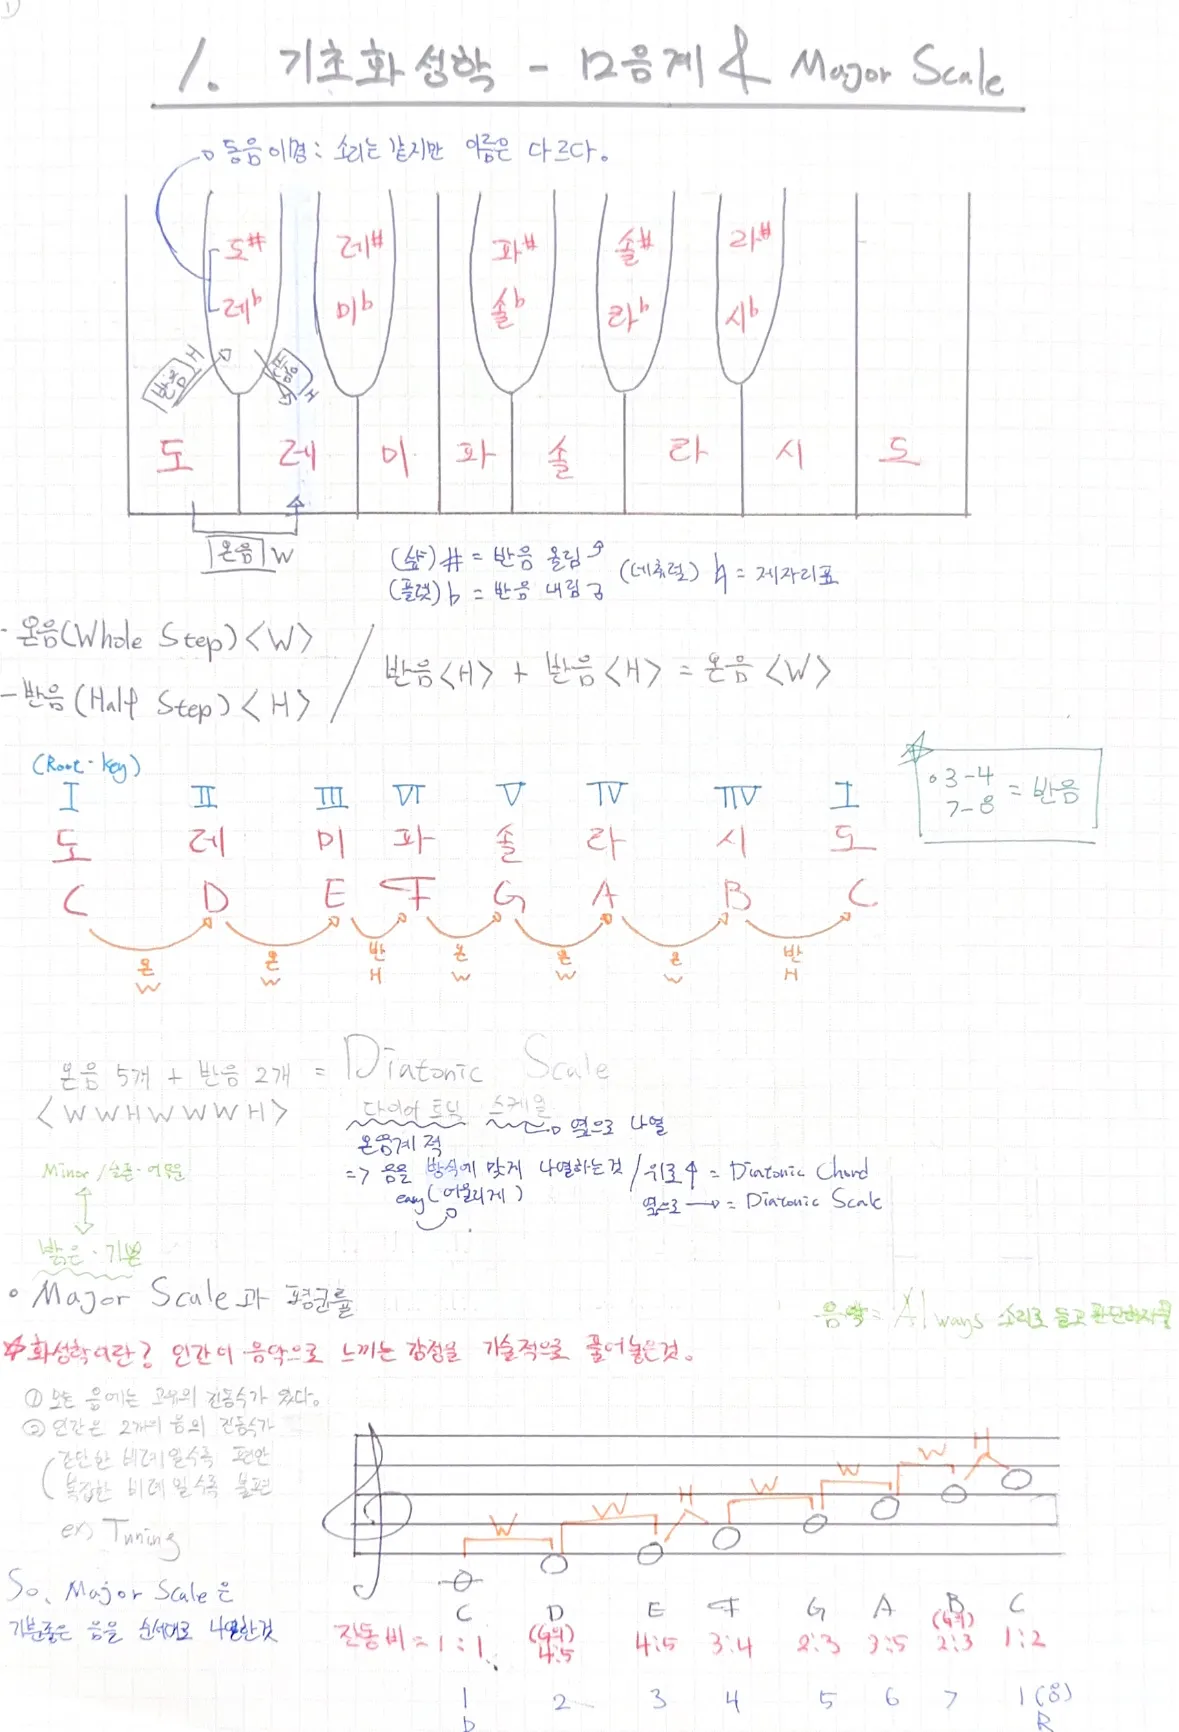 ①
1. 기초화성학 - 12음계 & Major Scale
동음이명: 소리는 같지만 이름은 다르다.
도# 레# 파# 솔# 라#
레b 미b 솔b 라b 시b
반음 H 반음 H
도 레 미 파 솔 라 시 도
온음 W
(샾) # = 반음 올림
(플랫) b = 반음 내림
(네츄럴) ♮ = 제자리표
- 온음(Whole Step) <W>
- 반음(Half Step) <H>
반음<H> + 반음<H> = 온음<W>
(Root·key)
I II III VI V IV IIV I
도 레 미 파 솔 라 시 도
C D E F G A B C
온 온 반 온 온 온 반
W W H W W W H
3-4
7-8 = 반음
온음 5개 + 반음 2개 = Diatonic Scale
<W W H W W W H>
다이어토닉 스케일
옆으로 나열
온음계적
=> 음을 방식에 맞게 나열하는것 / 위로↑ = Diatonic Chord
easy (어울리게)
옆으로 → = Diatonic Scale
Minor / 슬픈·어두운
밝은·기본
• Major Scale과 평균률
음악 = Always 소리로 듣고 판단하자
☆화성학이란? 인간이 음악으로 느끼는 감정을 기술적으로 풀어놓은것.
① 모든 음에는 고유의 진동수가 있다.
② 인간은 2개의 음의 진동수가
간단한 비례일수록 편안
복잡한 비례일수록 불편
ex) Tuning
So, Major Scale은
기분좋은 음을 순서대로 나열한것
W W H W W W H
C D E F G A B C
진동비 = 1:1 4:5 4:5 3:4 2:3 3:5 2:3 1:2
1 2 3 4 5 6 7 1(8)
R